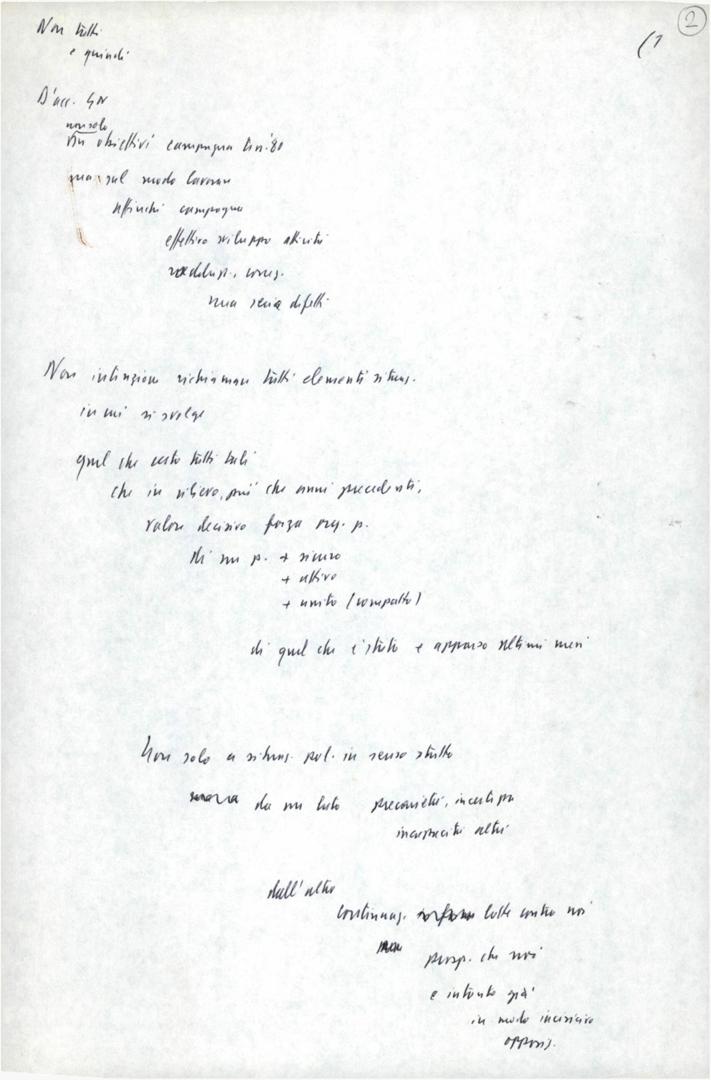 2
(1
Non tutti
e quindi
D'acc. GN
non solo
su obiettivi campagna tess. '80
ma sul modo lavorare
affinché campagna
effettivo sviluppo attività
cons.
ma senza difetti
Non intenzione richiamare tutti elementi situaz.
in cui si svolge
quel che certo tutti tali
che in rilievo, più che anni precedenti,
valore decisivo forza org. p.
di un p. + sicuro
+ attivo
+ unito (compatto)
di quel che è stato e apparso ultimi mesi
Non solo a situaz. pol. in senso stretto
da un lato precarietà, incertezza
incapacità altri
dall'altro
continuaz. lotte contro noi
persp. che noi
e intanto già
in modo incisivo
oppos.